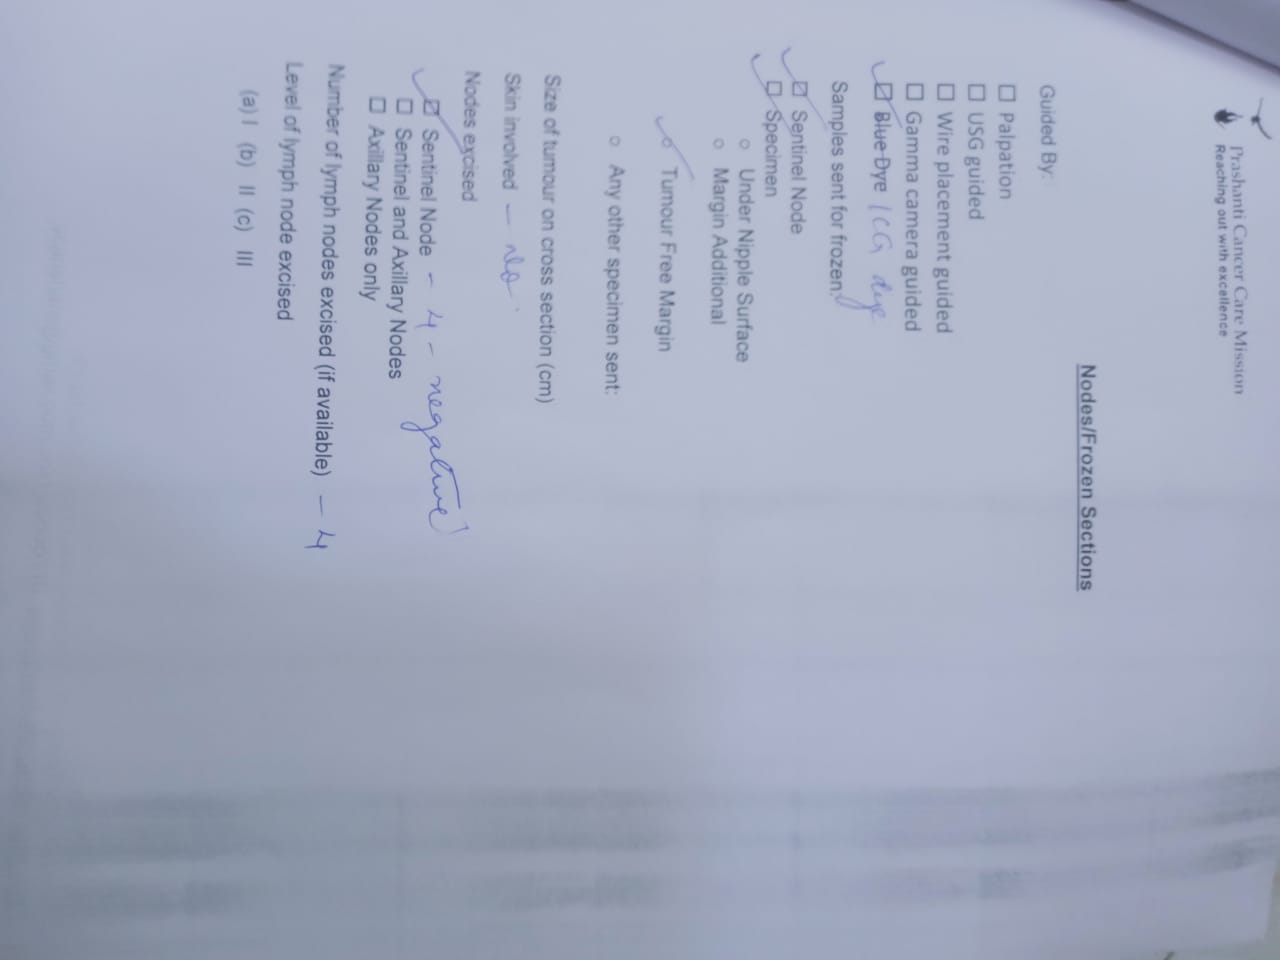 Prashanti Cancer Care Mission
Reaching out with excellence
Nodes/Frozen Sections
Guided By:
☐ Palpation
☐ USG guided
☐ Wire placement guided
☐ Gamma camera guided
☑ Blue Dye / ICG dye
Samples sent for frozen:
☑ Sentinel Node
☑ Specimen
○ Under Nipple Surface
○ Margin Additional
✓ Tumour Free Margin
○ Any other specimen sent:
Size of tumour on cross section (cm)
Skin involved – No.
Nodes excised
☑ Sentinel Node – 4 – negative
☐ Sentinel and Axillary Nodes
☐ Axillary Nodes only
Number of lymph nodes excised (if available) – 4
Level of lymph node excised
(a) I (b) II (c) III